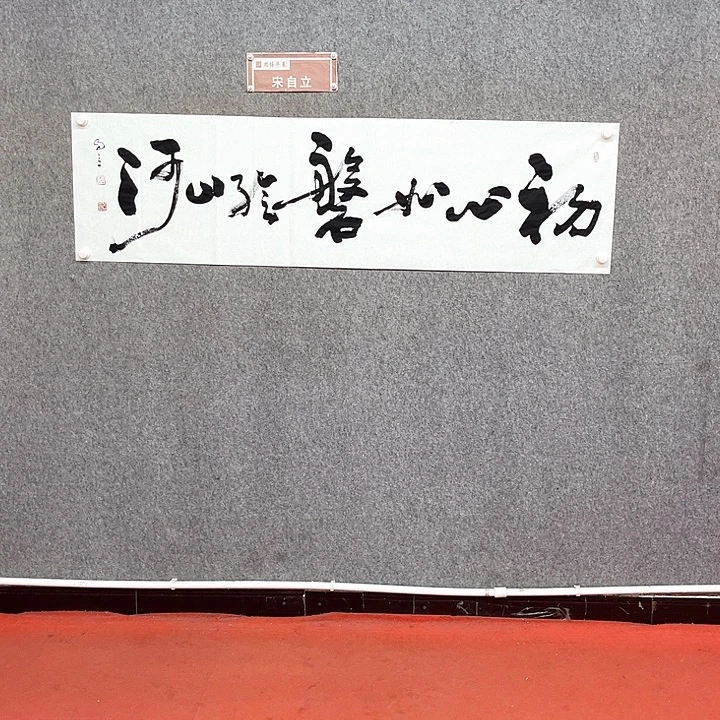 宋自立
初心如磐绘山河